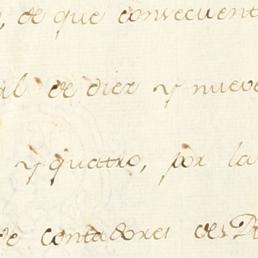 , de que consecuent
al de diez y nueve
y quatro, por la
de contadores des